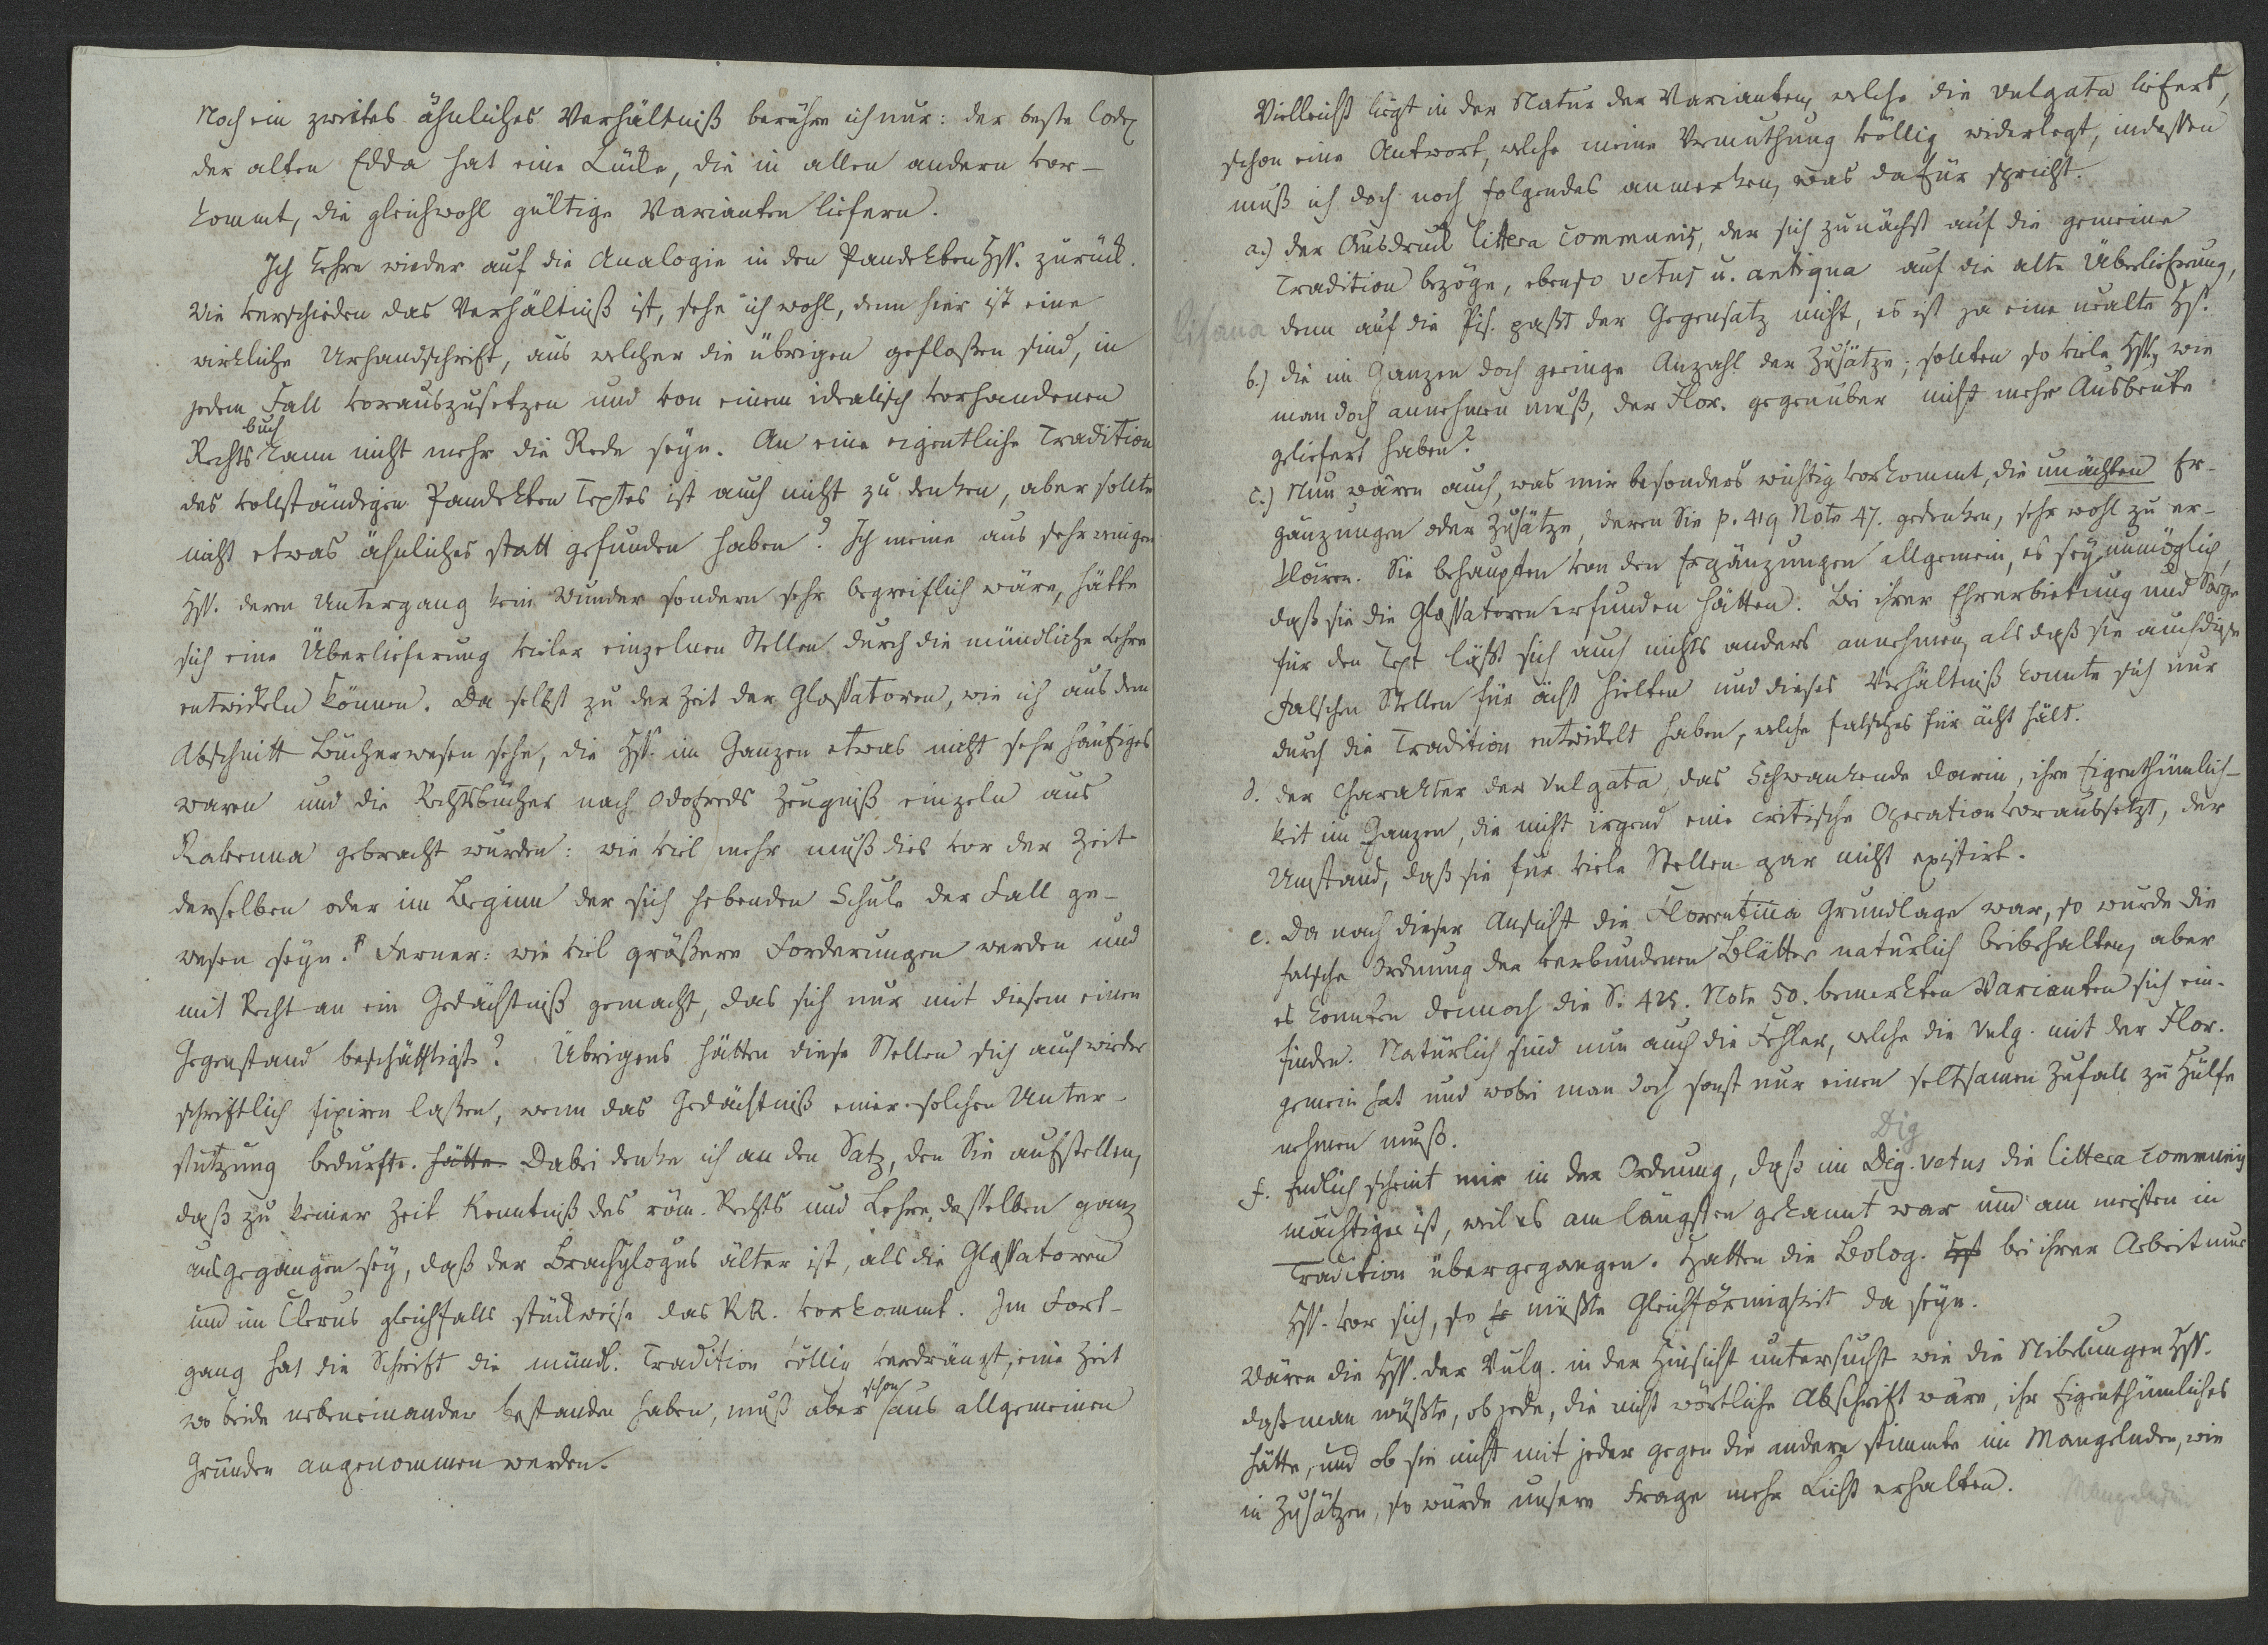 Noch ein zweites ähnliches Verhältniß berühre ich nur: der beste Codex
der alten Edda hat eine Lücke, die in allen andern vor-
kommt, die gleichwohl gültige Varianten liefern.
Ich kehre wieder auf die Analogie in den Pandekten Hss. zurück.
Wie verschieden das Verhältniß ist, sehe ich wohl, denn hier ist eine
wirkliche Urhandschrift, aus welcher die übrigen geflossen sind, in
jedem Fall vorauszusetzen und von einem idealisch vorhandenen
buch
Rechts kann nicht mehr die Rede seyn. An eine eigentliche Tradition
des vollständigen Pandekten Textes ist auch nicht zu denken, aber sollte
nicht etwas ähnliches statt gefunden haben? Ich meine aus sehr wenigen
Hss. deren Untergang kein Wunder sondern sehr begreiflich wäre, hätte
sich eine Überlieferung vieler einzelnen Stellen durch die mündliche Lehre
entwickeln können. Da selbst zu der Zeit der Glossatoren, wie ich aus dem
Abschnitt Bücherwesen sehe, die Hss. im Ganzen etwas nicht sehr häufiges
waren und die Rechtsbücher nach Odofreds Zeugniß einzeln aus
Ravenna gebracht wurden: wie viel mehr muß dies vor der Zeit
derselben oder im Beginn der sich hebenden Schule der Fall ge-
wesen seyn. Ferner: wie viel größere Forderungen werden und
mit Recht an ein Gedächtniß gemacht, das sich nur mit diesem einen
Gegenstand beschäftigte? Übrigens hätten diese Stellen sich auch wieder
schriftlich fixiren laßen, wenn das Gedächtniß einer solchen Unter-
stützung bedurfte. hätte. Dabei denke ich an den Satz, den Sie aufstellen,
daß zu keiner Zeit Kenntniß des röm. Rechts und Lehre desselben ganz
ausgegangen sey, daß der Brachylogus älter ist, als die Glossatoren
und im Clerus gleichfalls stückweise das RR. vorkommt. Im Fort-
gang hat die Schrift die mündl. Tradition völlig verdrängt, eine Zeit
schon
wo beide nebeneinander bestanden haben, muß aber aus allgemeinen
Gründen angenommen werden.
Vielleicht liegt in der Natur der Varianten, welche die vulgata liefert,
schon eine Antwort, welche meine Vermuthung völlig widerlegt, indessen
muß ich doch noch folgendes anmerken, was dafür spricht.
a.) der Ausdruck littera communis, der sich zunächst auf die gemeine
Tradition bezöge, ebenso vetus u. antiqua auf die alte Überlieferung,
Pisana
denn auf die Pis. paßt der Gegensatz nicht, es ist ja eine uralte Hs.
b.) die im Ganzen doch geringe Anzahl der Zusätze; sollten so viele Hss., wie
man doch annehmen muß, der Flor. gegenüber nicht mehr Ausbeute
geliefert haben?
c.) Nun wären auch, was mir besonders wichtig vorkommt, die unächten Er-
gänzungen oder Zusätze, deren Sie p. 419 Note 47. gedenken, sehr wohl zu er-
klären. Sie behaupten von den Ergänzungen allgemein, es sey unmöglich,
daß sie die Glossatoren erfunden hätten. Bei ihrer Ehrerbietung und Sorge
für den Text läßt sich auch nichts anders annehmen, als daß sie auch diese
falschen Stellen für ächt hielten und dieses Verhältniß konnte sich nur
durch die Tradition entwickelt haben, welche falsches für ächt hält.
d. der Charakter der Vulgata, das Schwankende darin, ihre Eigenthümlich-
keit im Ganzen, die nicht irgend eine critische Operation voraussetzt, der
Umstand, daß sie für viele Stellen gar nicht existirt.
e. Da nach dieser Ansicht die Florentina Grundlage war, so wurde die
falsche Ordnung der verbundenen Blätter natürlich beibehalten, aber
es konnten dennoch die S. 425. Note 50. bemerkten Varianten sich ein-
finden. Natürlich sind nun auch die Fehler, welche die Vulg. mit der Flor.
gemein hat und wobei man doch sonst nur einen seltsamen Zufall zu Hülfe
nehmen muß.
Dig
f. Endlich scheint mir in der Ordnung, daß im Dig. vetus die littera communis
mächtiger ist, weil es am längsten gekannt war und am meisten in
Tradition übergegangen. Hatten die Bolog. bei ihrer Arbeit nur
Hss. vor sich, so müßte Gleichförmigkeit da seyn.
Wären die Hss. der Vulg. in der Hinsicht untersucht wie die Nibelungen Hss.
daß man wüßte, ob jede, die nicht wörtliche Abschrift wäre, ihr Eigenthümliches
hätte, und ob sie nicht mit jeder gegen die andere stimmte im Mangelnden, wie
in Zusätzen, so würde unsere Frage mehr Licht erhalten.
Mangelnden